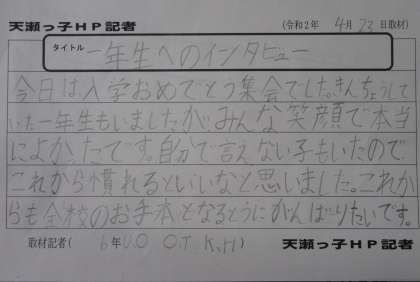 天瀬っ子HP記者 (令和2年 4月23日取材)
タイトル 一年生へのインタビュー
今日は、入学おめでとう集会でした。きんちょうして
いた一年生もいましたが、みんな笑顔で本当
によかったです。自分で言えない子もいたので、
これから慣れるといいなと思いました。これか
らも全校のお手本となるようにがんばりたいです。
取材記者( 6年U.O O.T K.H) 天瀬っ子HP記者